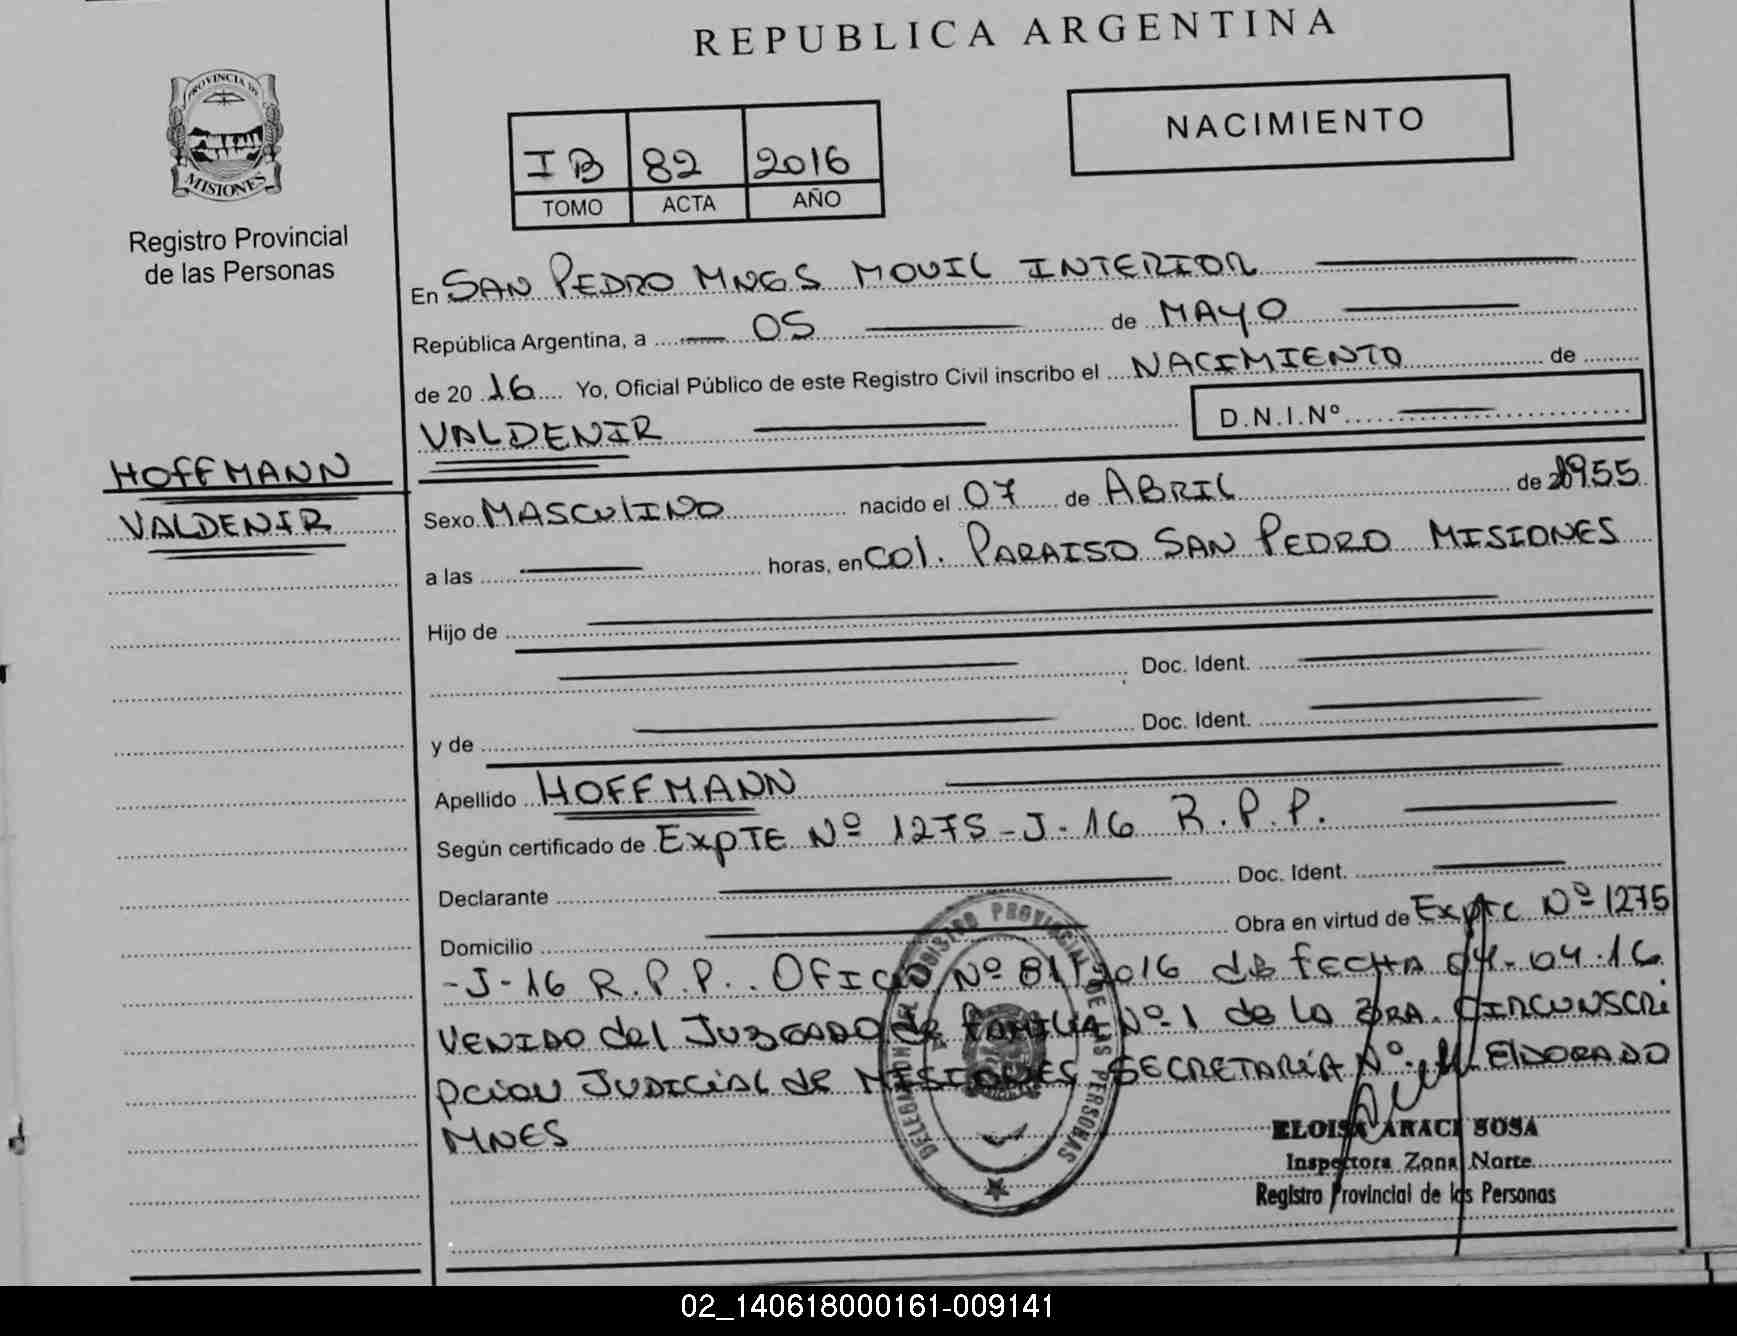 REPUBLICA ARGENTINA
PROVINCIA DE
MISIONES
Registro Provincial
de las Personas
NACIMIENTO
IB 82 2016
TOMO ACTA AÑO
En SAN PEDRO MNGS MOVIL INTERIOR
República Argentina, a 05 de MAYO
de 20 16 Yo, Oficial Público de este Registro Civil inscribo el NACIMIENTO de
VALDENIR D.N.I.Nº
HOFFMANN
VALDENIR
Sexo MASCULINO nacido el 07 de ABRIL de 1955
a las horas, en COL. PARAISO SAN PEDRO MISIONES
Hijo de
Doc. Ident.
y de Doc. Ident.
Apellido HOFFMANN
Según certificado de EXPTE Nº 1275-J-16 R.P.P.
Declarante Doc. Ident.
Domicilio Obra en virtud de Expte Nº 1275
-J-16 R.P.P.. OFICIO Nº 81/2016 de FECHA 04-04-16
VENIDO del JUZGADO de FAMILIA Nº 1 de LA 3RA. CIRCUNSCRI
pcion JUDICIAL de MISIONES SECRETARIA Nº ELDORADO
MNES
DELEGACION REGISTRO PROVINCIAL DE LAS PERSONAS
ELOISA ARACI SOSA
Inspectora Zona Norte
Registro Provincial de las Personas
02_140618000161-009141